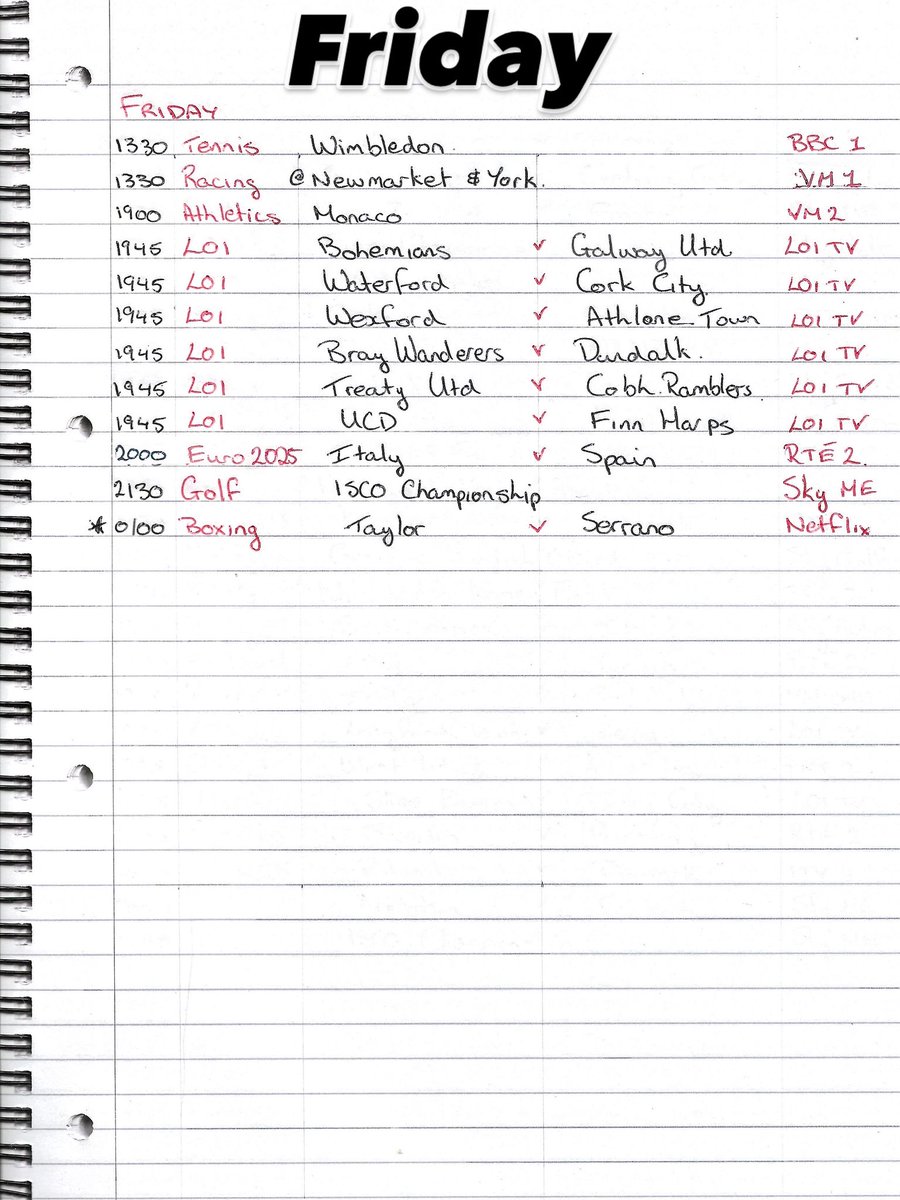 Friday
FRIDAY
1330 Tennis Wimbledon. BBC 1
1330 Racing @ Newmarket & York. VM 1
1900 Athletics Monaco VM 2
1945 LOI Bohemians v Galway Utd LOI TV
1945 LOI Waterford v Cork City. LOI TV
1945 LOI Wexford v Athlone Town LOI TV
1945 LOI Bray Wanderers v Dundalk. LOI TV
1945 LOI Treaty Utd v Cobh Ramblers. LOI TV
1945 LOI UCD v Finn Harps LOI TV
2000 Euro 2025 Italy v Spain RTÉ 2.
2130 Golf ISCO Championship Sky ME
* 0100 Boxing Taylor v Serrano Netflix